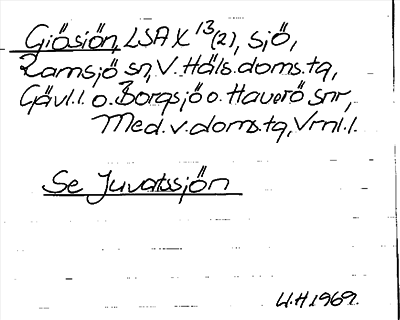 Giösjön, LSA X 13(2), sjö,
Ramsjö sn, V. Häls. doms. tg,
Gävl. l. o. Borgsjö o. Haverö snr,
Med. v. doms. tg, Vrnl. l.
Se Juvatssjön
U.H 1969.